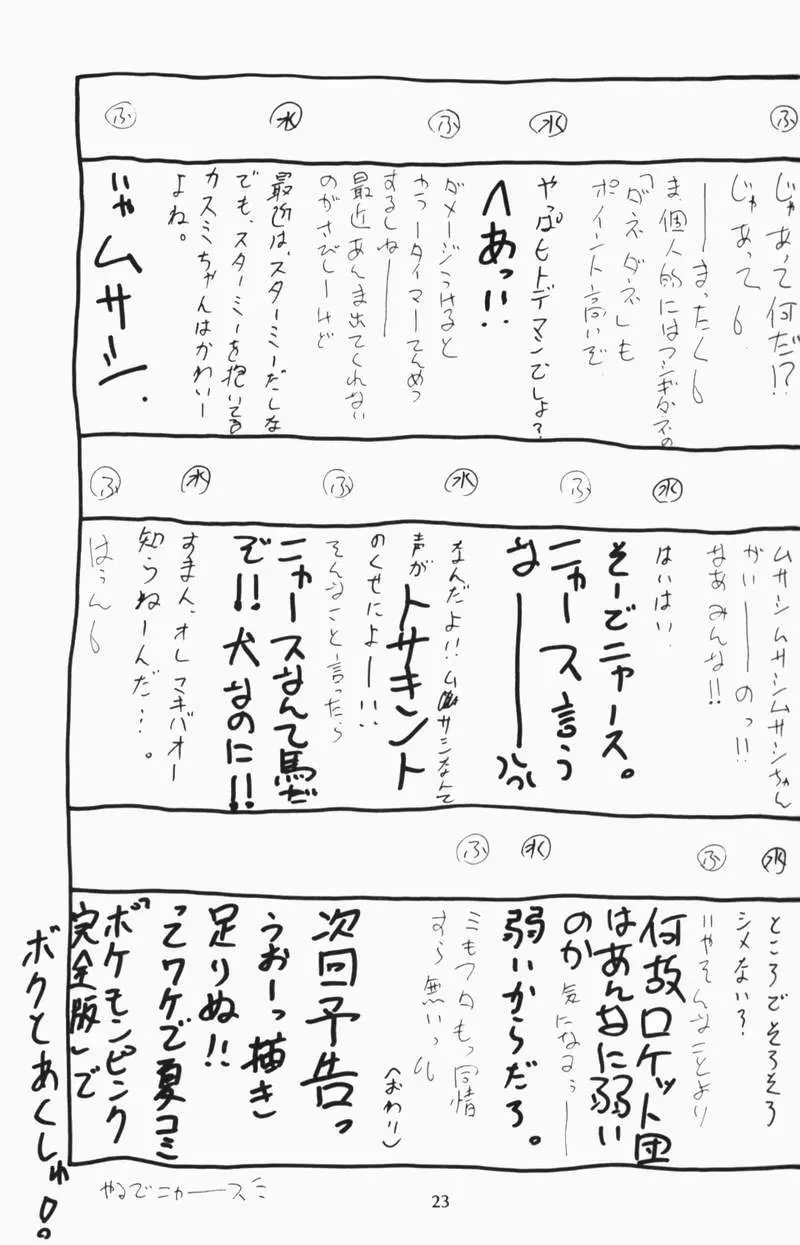 ふ
じゃあって何だ!?
じゃあってぃ
――まったくも
ま、個人的にはフシギダネの
「ダネダネ」も
ポイント高いぞ
水
やっぱヒトデマンでしょ?
ヘあっ!!
ふ
ダメージうけると
カラータイマーてんめつ
するしね――
最近あんま出てくれない
のがさびしーけど
水
最近は、スターミーだしな
でも、スターミーを抱いてる
カスミちゃんはかわいー
よね。
ふ
いや ムサシ.
ムサシムサシムサシちゃん
がい――のっ!!
なあみんな!!
水
はいはい
そーでニャース。
ふ
ニャース言う
な――
水
なんだよ!!ムサシなんて
声がトサキント
のくせによ――!!
ふ
そんなこと言ったら
ニャースなんて馬だ
ぞ!!犬なのに!!
水
すまん、オレマキバオー
知らねーんだ…。
ふ
はうんぃ
水
ところでそろそろ
シメない?
ふ
いやそんなことより
何故ロケット団
はあんなに弱い
のか 気になるぅ――
水
弱いからだろ。
ふ
ミもフタもっ同情
すら無いっ
(おわり)
次回予告っ
うおーっ描き
足りぬ!!
ってワケで夏コミ
「ポケモンピンク
完全版」で
ボクとあくしゅ!
やるでニャ――ス
23